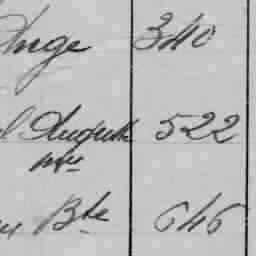 Ange 340
Auguste 522
Mme
Bte 646